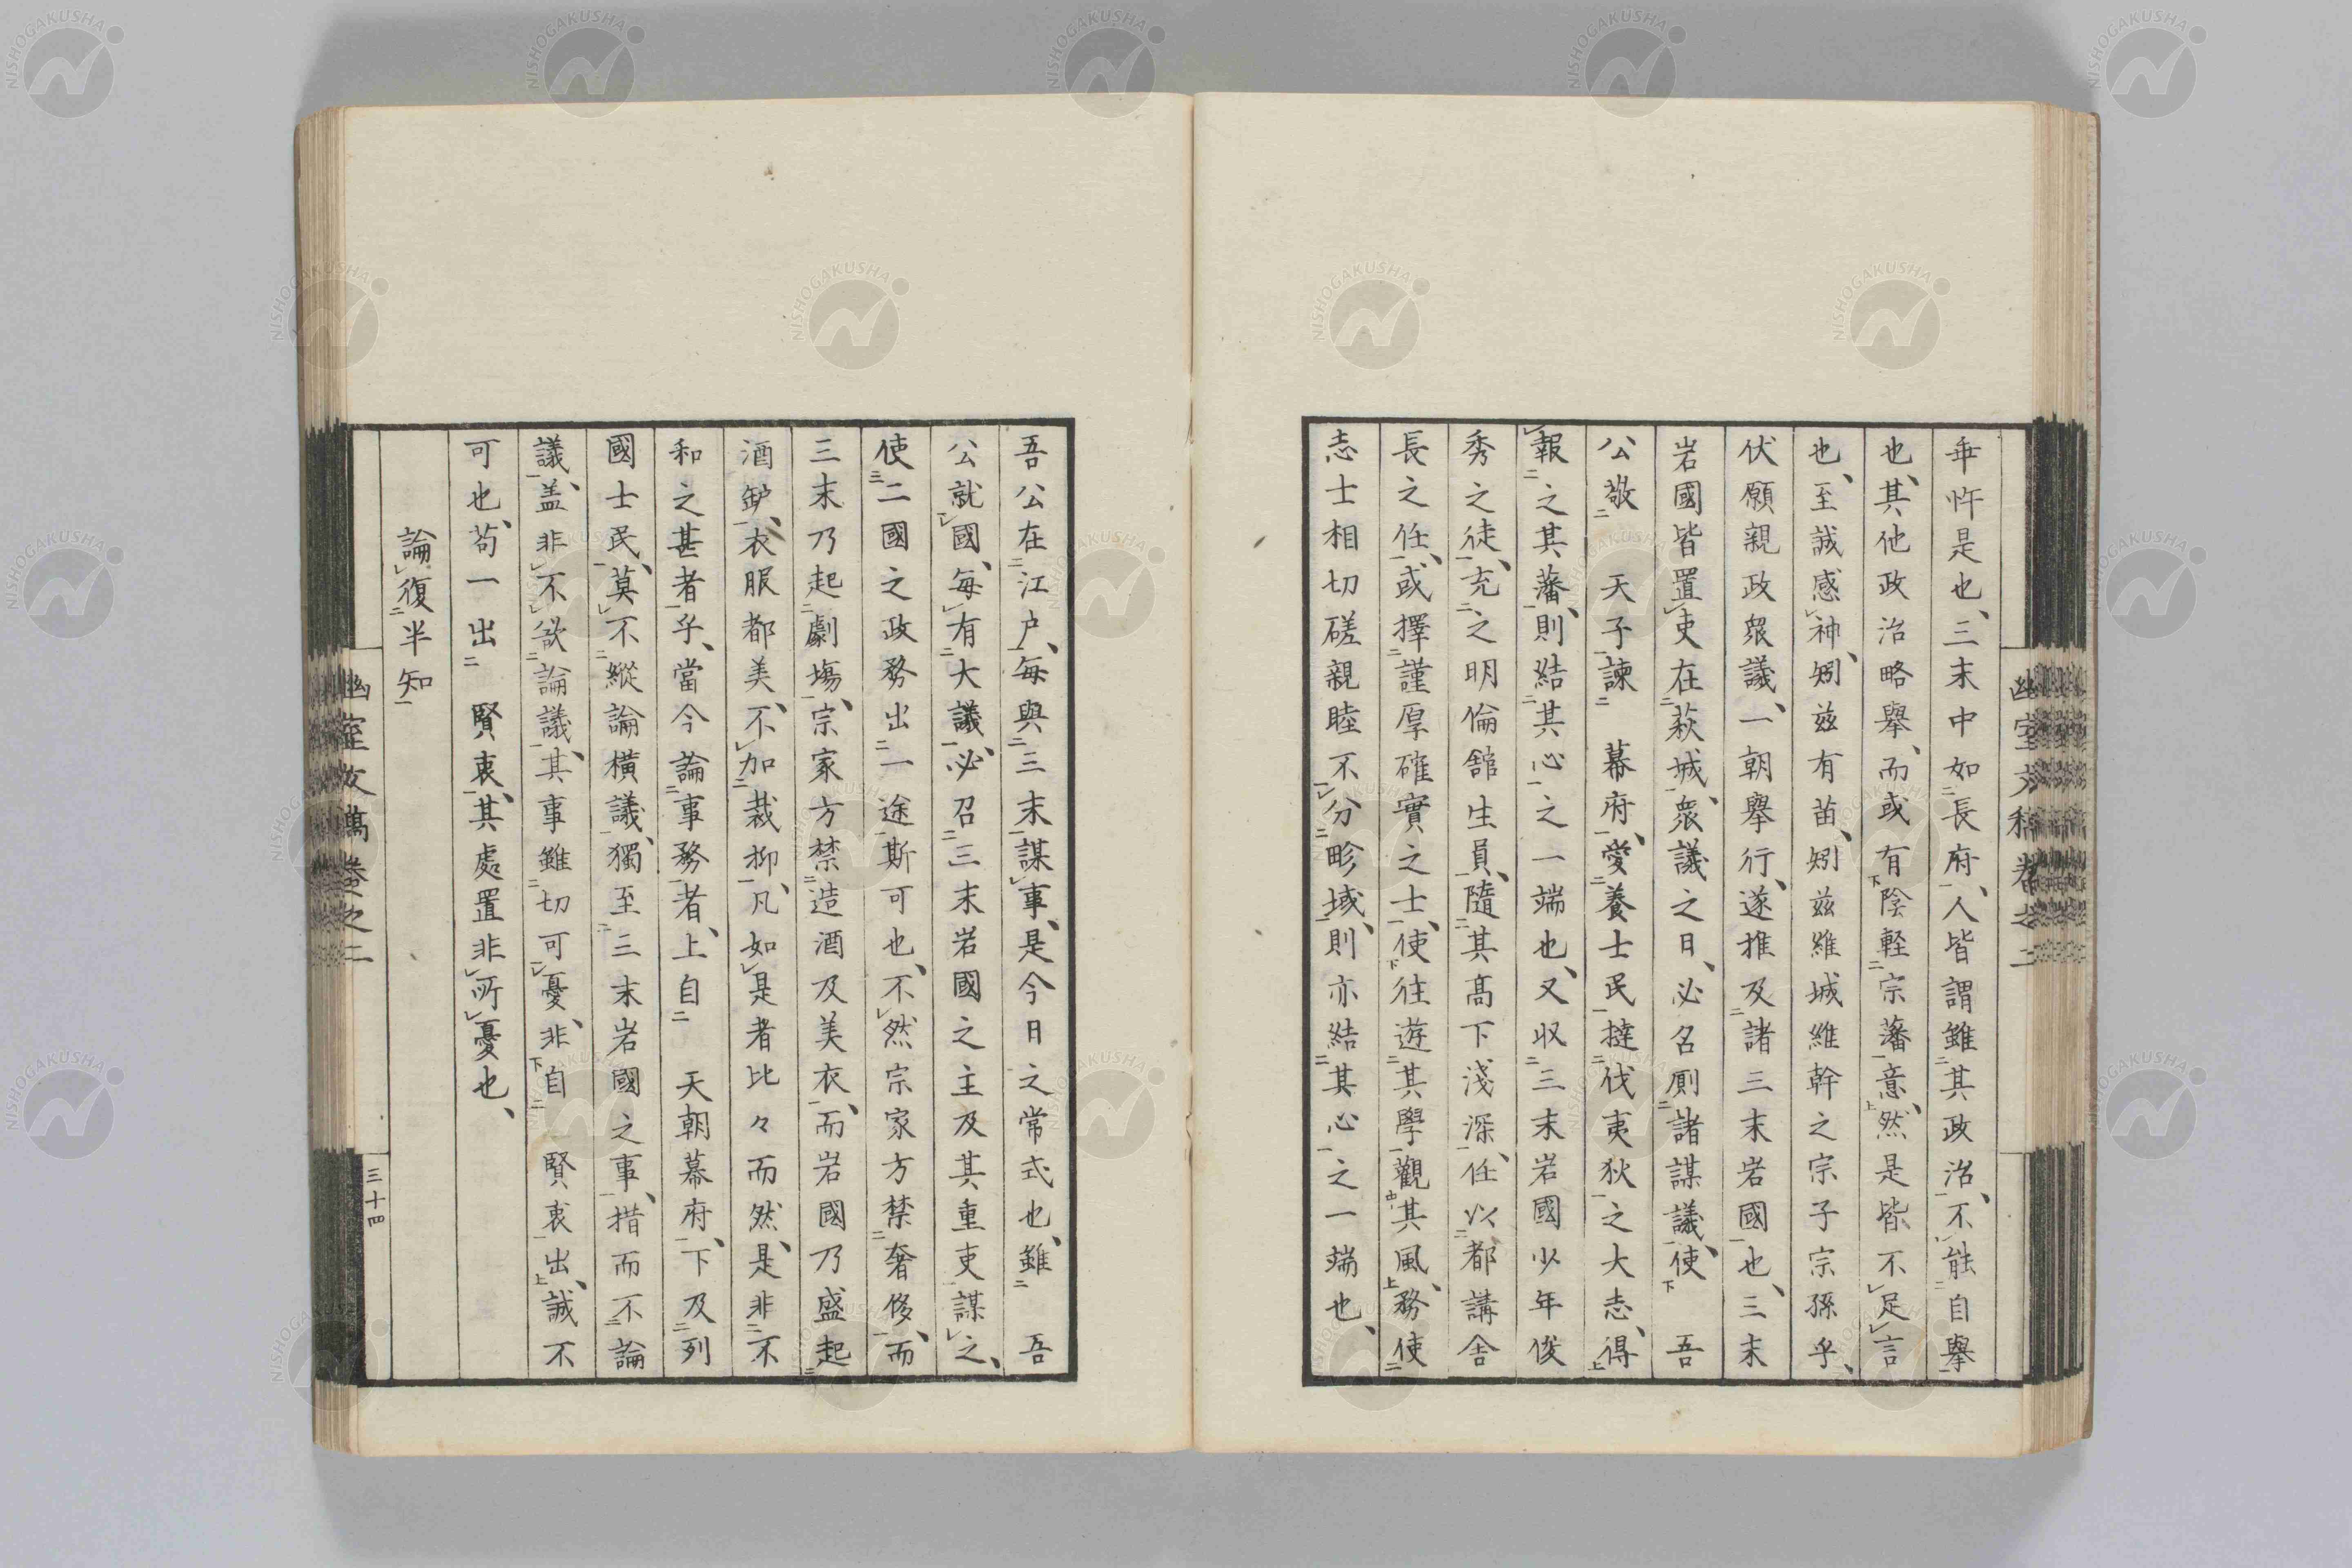 幽室文稿卷之二
乖忤是也、三末中如長府、人皆謂雖其政治、不能自擧
也、其他政治略擧、而或有陰輕宗藩意、然是皆不足言
也、至誠感神、矧茲有苗、矧茲維城維幹之宗子宗孫乎、
伏願親政衆議、一朝擧行、遂推及諸三末岩國也、三末
岩國皆置吏在萩城、衆議之日、必召厠諸謀議、使　吾
公敬　天子諫　幕府、愛養士民撻伐夷狄之大志、得
報之其藩、則結其心之一端也、又収三末岩國少年俊
秀之徒、充之明倫舘生員、隨其髙下淺深、任以都講舎
長之任、或擇謹厚確實之士、使往遊其學觀其風、務使
志士相切磋親睦不分畛域、則亦結其心之一端也、
吾公在江戸、每與三末謀事、是今日之常式也、雖　吾
公就國、每有大議、必召三末岩國之主及其重吏謀之、
使二國之政務出一途斯可也、不然宗家方禁奢侈、而
三末乃起劇塲、宗家方禁造酒及美衣、而岩國乃盛起
酒鈩、衣服都美、不加裁抑、凡如是者比々而然、是非不
和之甚者乎、當今論事務者、上自　天朝幕府、下及列
國士民、莫不縱論橫議、獨至三末岩國之事、措而不論
議、盖非不欲論議、其事雖切可憂、非自　賢衷出、誠不
可也、苟一出　賢衷、其處置非所憂也、
論復半知
幽室文稿卷之二
三十四
NISHOGAKUSHA